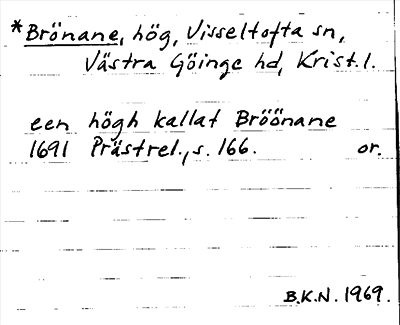 *Brönane, hög, Visseltofta sn,
Västra Göinge hd, Krist. l.
een högh kallat Bröönane
1691 Prästrel., s. 166. or.
B.K.N. 1969.